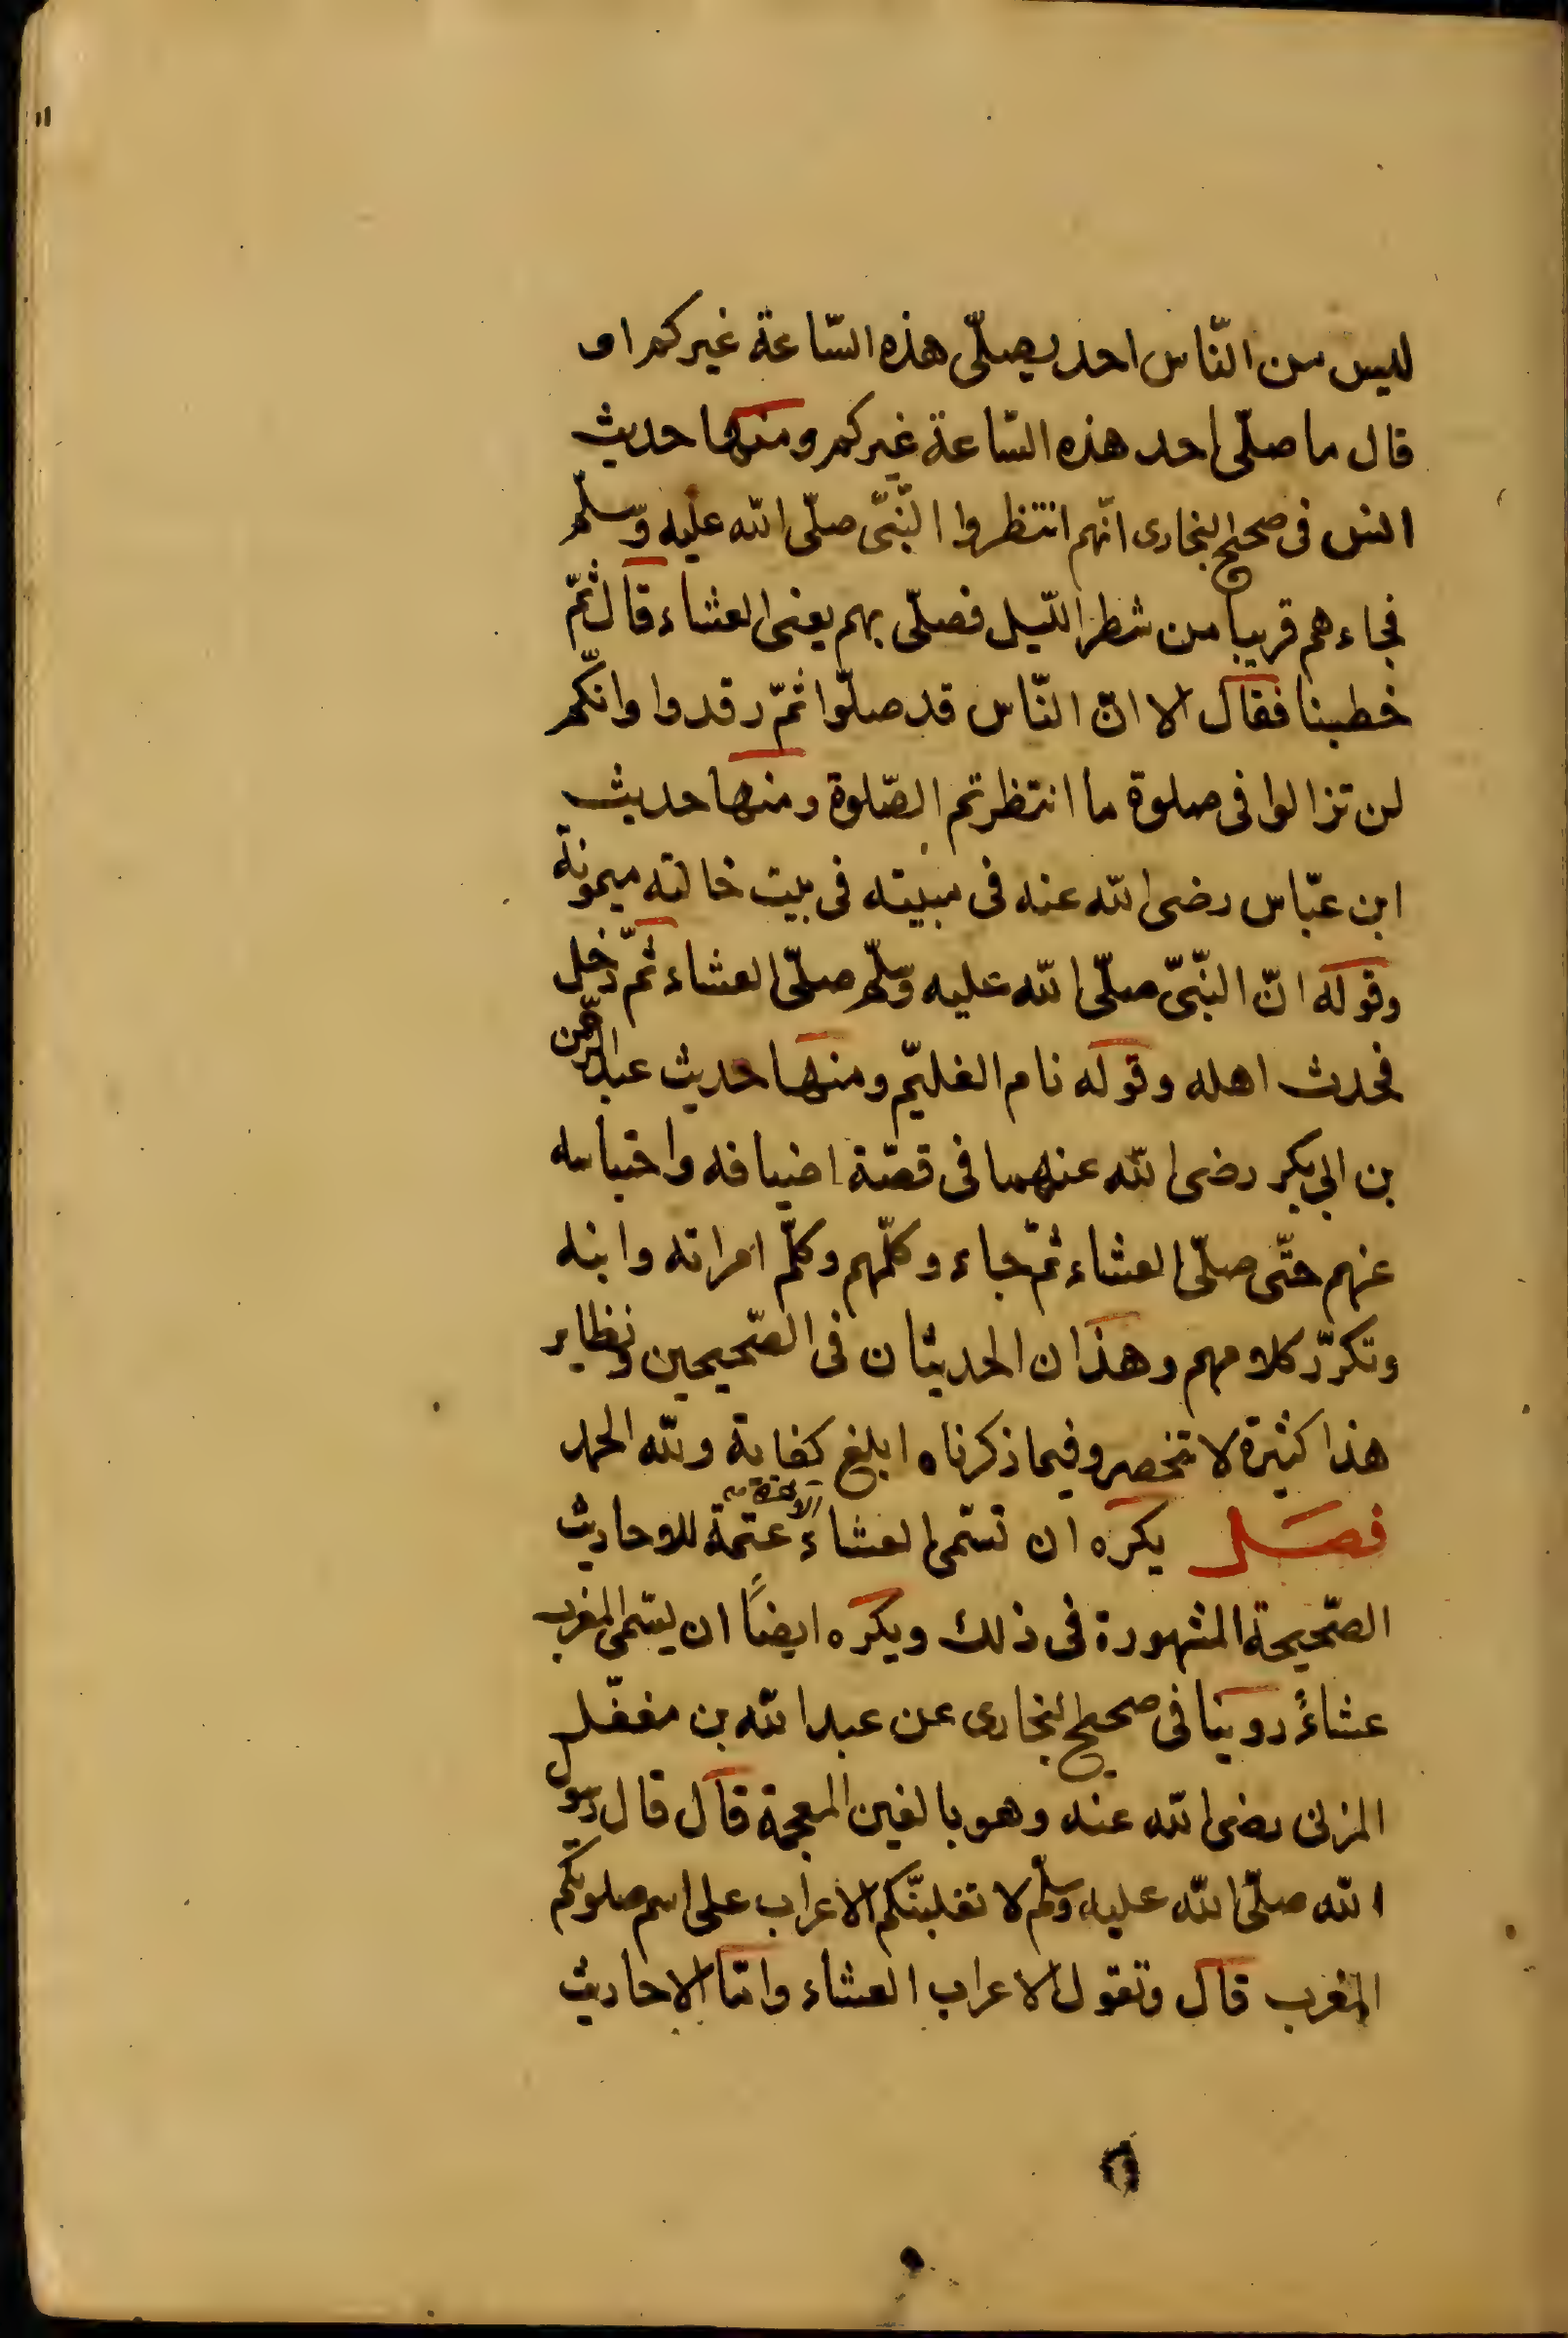 ليس من النّاس احد يصلّى هذه السّاعة غيركم او
قال ما صلّى احد هذه السّاعة غيركم ومنها حديث
انس فى صحيح البخارى انّهم انتظروا النّبىّ صلّى الله عليه وسلّم
فجاءهم قريبا من شطر اللّيل فصلّى بهم يعنى العشاء قال ثمّ
خطبنا فقال الا انّ النّاس قد صلّوا ثمّ رقدوا وانّكم
لن تزالوا فى صلوة ما انتظرتم الصّلوة ومنها حديث
ابن عبّاس رضى الله عنه فى مبيته فى بيت خالته ميمونة
وقوله انّ النّبىّ صلّى الله عليه وسلّم صلّى العشاء ثمّ دخل
فحدث اهله وقوله نام الغليّم ومنها حديث عبد الرّحمن
بن ابى بكر رضى الله عنهما فى قصّة اضيافه واحتباسه
عنهم حتّى صلّى العشاء ثمّ جاء وكلّمهم وكلّم امراته وابنه
وتكرّر كلامهم وهذان الحديثان فى الصّحيحين ونظاير
هذا كثيرة لا تنحصر وفيما ذكرناه ابلغ كفاية ولله الحمد
فصل يكره ان تسمّى العشاء الاخرة عتمة للاحاديث
الصّحيحة المشهورة فى ذلك ويكره ايضًا ان يسمّى المغرب
عشاءً روينا فى صحيح البخارى عن عبد الله بن مغفّل
المزنى رضى الله عنه وهو بالغين المعجمة قال قال رسول
الله صلّى الله عليه وسلّم لا تغلبنّكم الاعراب على اسم صلوتكم
المغرب قال وتقول الاعراب العشاء وامّا الاحاديث